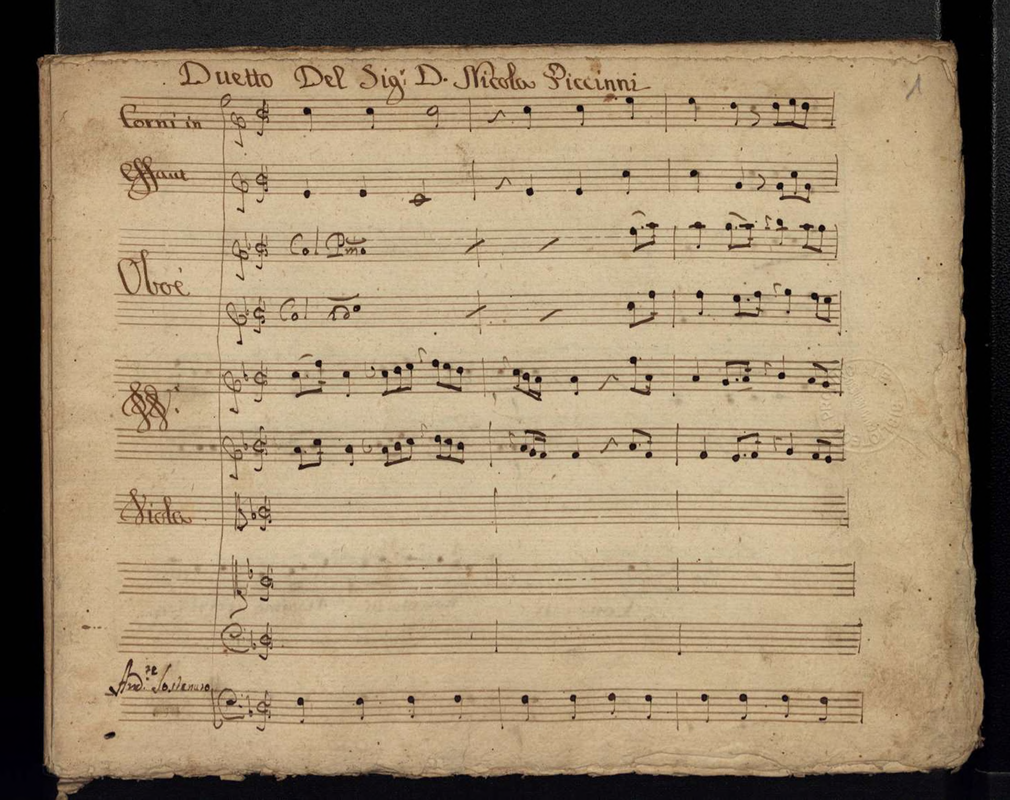 Duetto Del Sigr. D. Nicola Piccinni
1
Corni in
Effaut
Col Pmo.
Oboè
Col 2do
VV.
Viola
Andre. Sostenuto